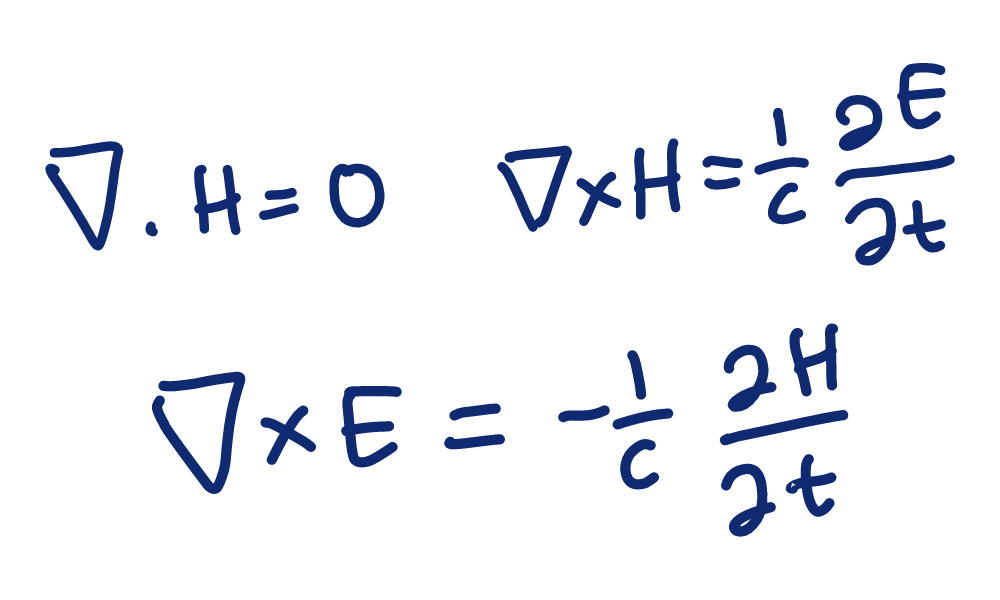 ∇ · H = 0 ∇ × H = 1/c ∂E/∂t
∇ × E = − 1/c ∂H/∂t